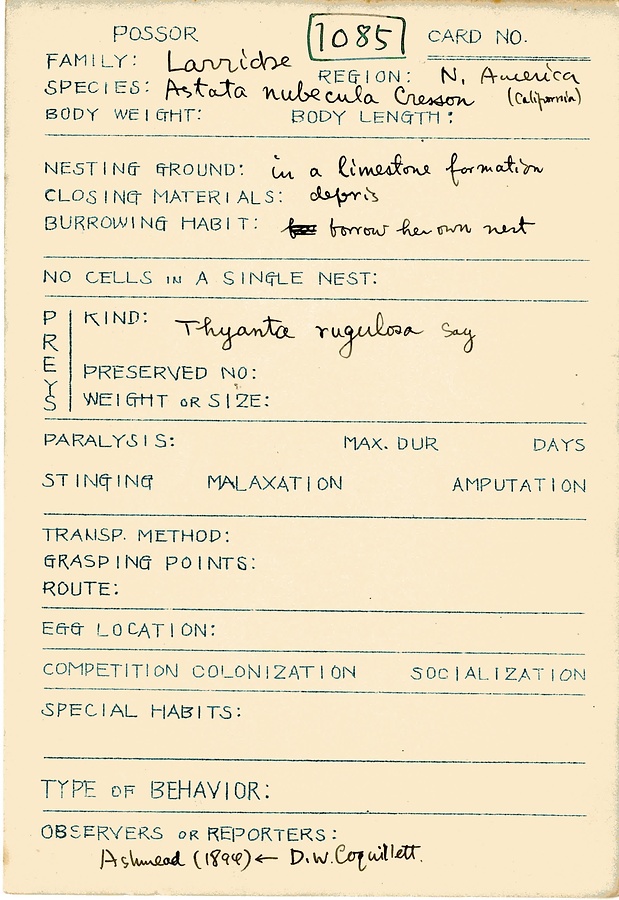 POSSOR 1085 CARD NO.
FAMILY: Larridae
REGION: N. America
SPECIES: Astata nubecula Cresson (California)
BODY WEIGHT: BODY LENGTH:
NESTING GROUND: in a limestone formation
CLOSING MATERIALS: depris
BURROWING HABIT: borrow her own nest
NO CELLS IN A SINGLE NEST:
PREYS
KIND: Thyanta rugulosa Say
PRESERVED NO:
WEIGHT OR SIZE:
PARALYSIS: MAX. DUR DAYS
STINGING MALAXATION AMPUTATION
TRANSP. METHOD:
GRASPING POINTS:
ROUTE:
EGG LOCATION:
COMPETITION COLONIZATION SOCIALIZATION
SPECIAL HABITS:
TYPE OF BEHAVIOR:
OBSERVERS OR REPORTERS:
Ashmead (1894) ← D.W. Coquillett.